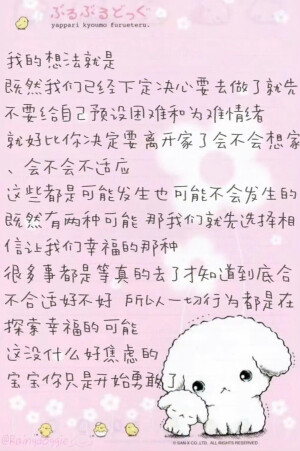 ぶるぶるどっぐ
yappari kyoumo furueteru.
我的想法就是
既然我们已经下定决心要去做了就先
不要给自己预设困难和为难情绪
就好比你决定要离开家了会不会想家
、会不会不适应
这些都是可能发生也可能不会发生的
既然有两种可能 那我们就先选择相
信让我们幸福的那种
很多事都是等真的去了才知道到底合
不合适好不好 所以一切行为都是在
探索幸福的可能
这没什么好焦虑的
宝宝你只是开始勇敢了